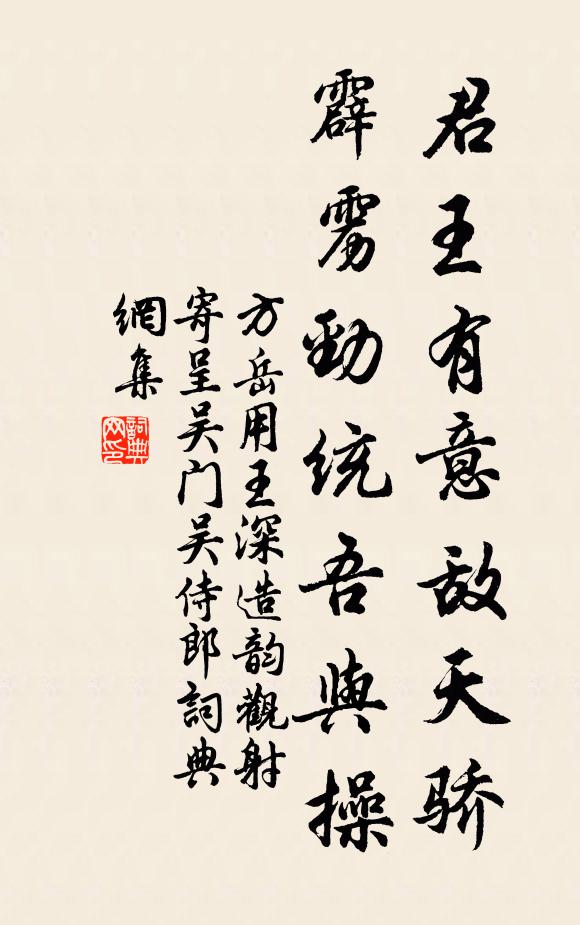 君王有意敌天骄
霹雳劲统吾與操
方岳用王深造韵觀射
寄呈吴门吴侍郎詞典
網集
詞典
网印